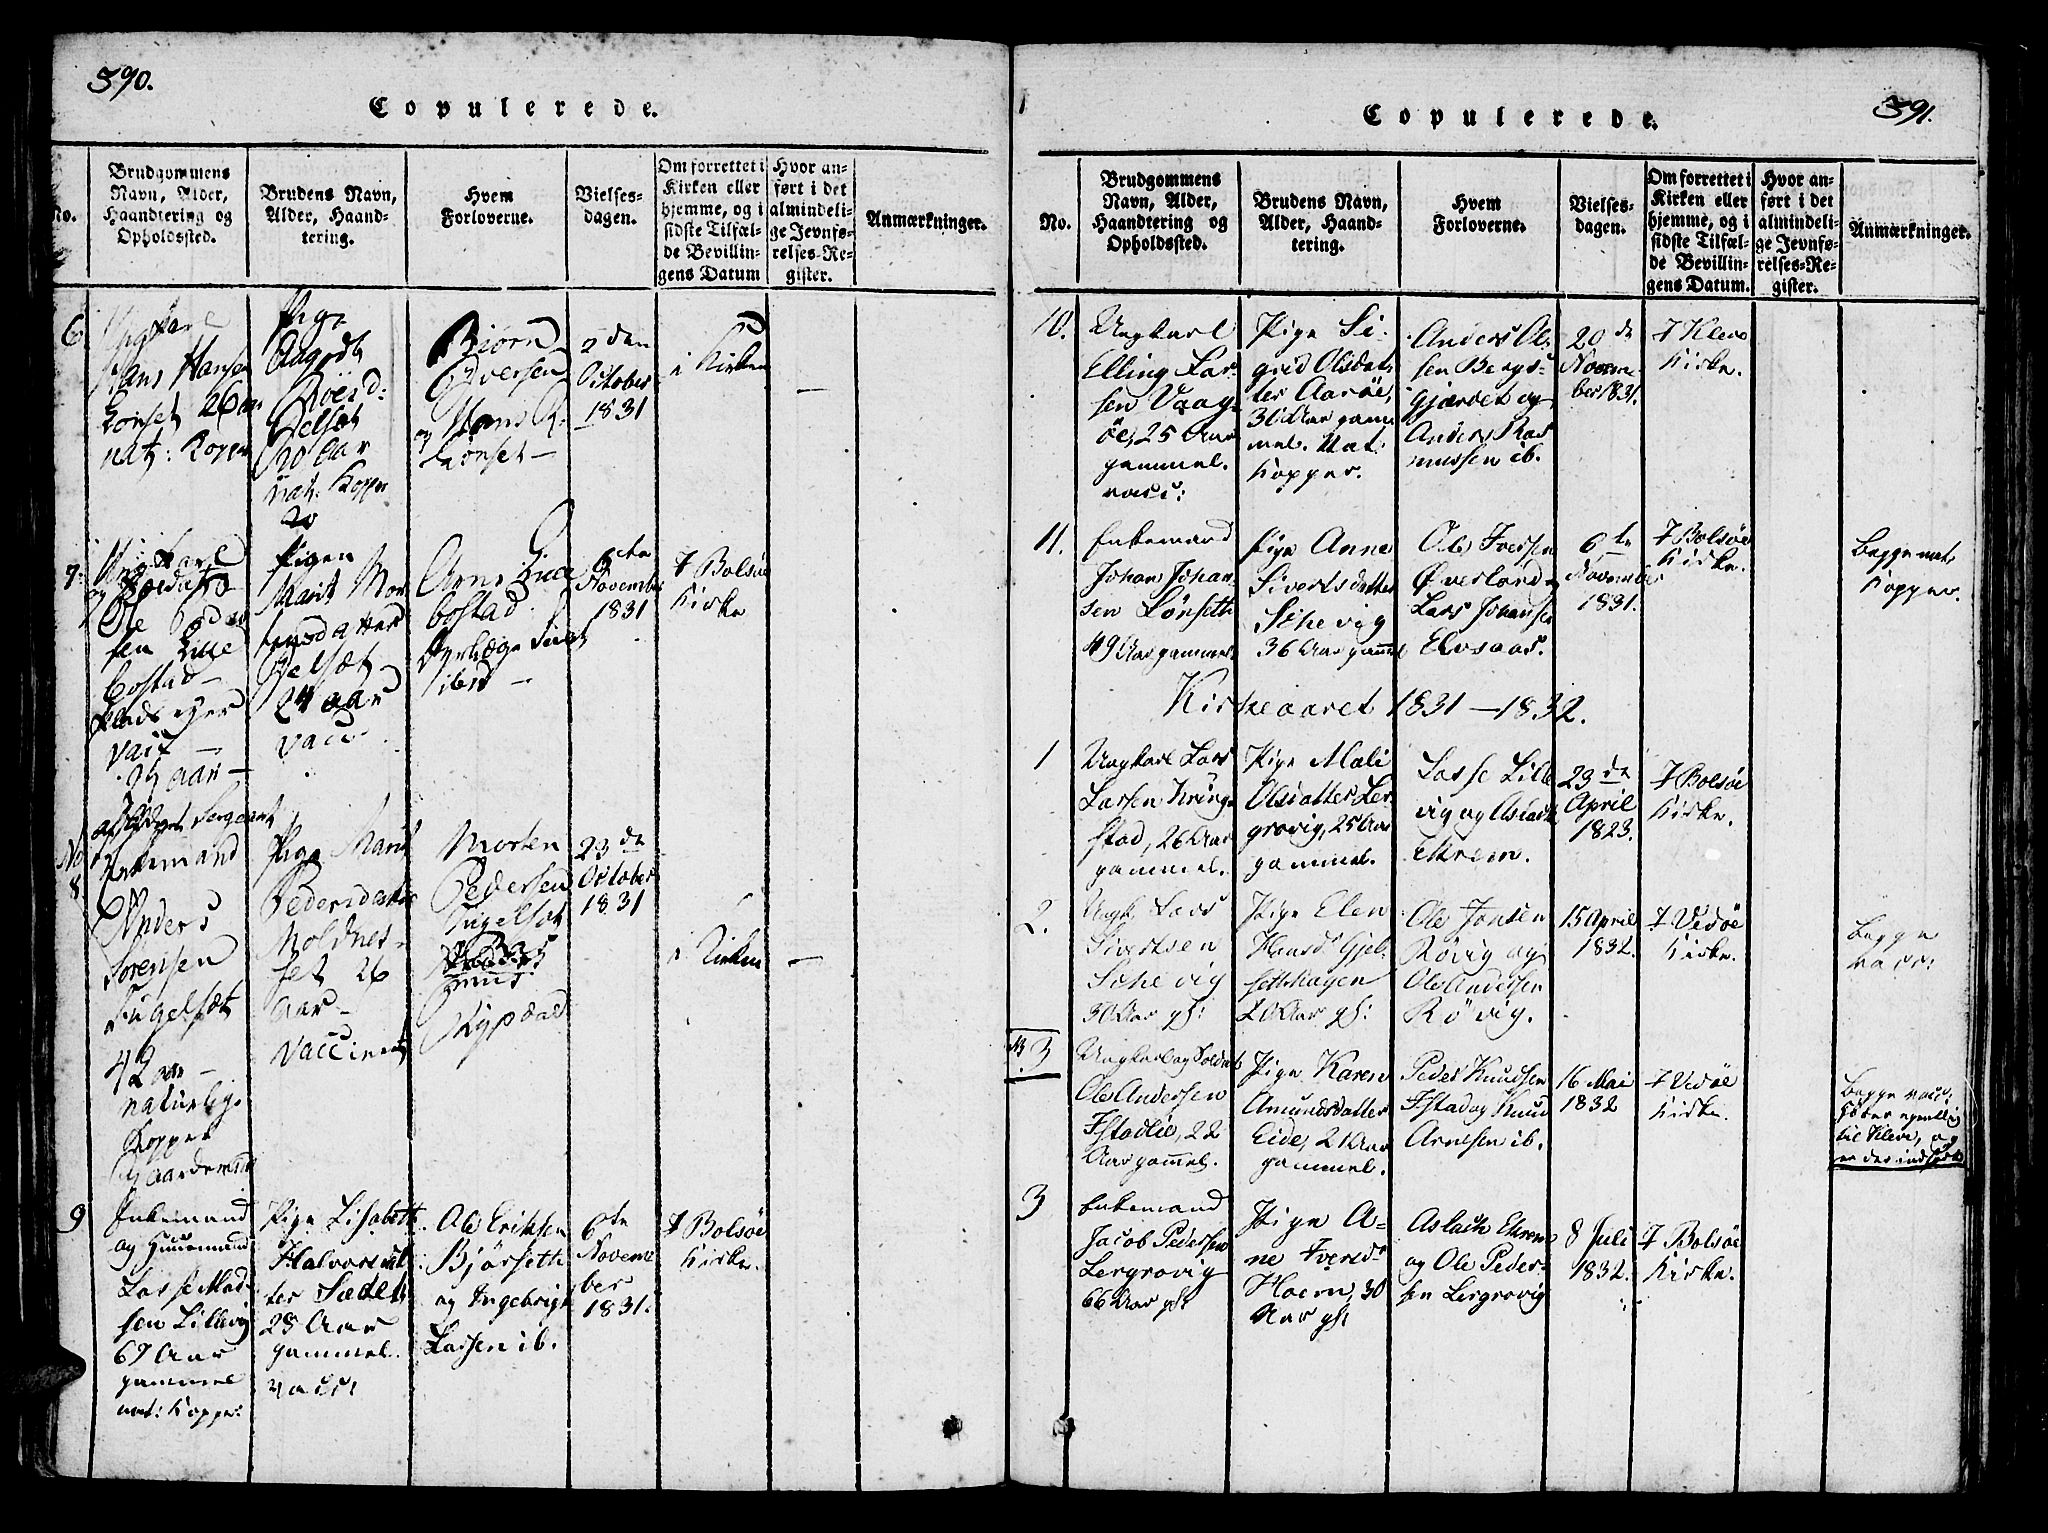 390.
Copulerede.
No.
Brudgommens
Navn, Alder,
Haandtering og
Opholdssted.
Brudens Navn,
Alder, Haand-
tering.
Hvem
Forloverne.
Vielses-
dagen.
Om forrettet i
Kirken eller
hjemme, og i
sidste Tilfæl-
de Bevillin-
gens Datum
Hvor an-
ført i det
almindeli-
ge Jevnfø-
relses-Re-
gister.
Anmærkninger.
6
Ungkarl
Hans Hansen
Lønset 26 aar
nat: Kopper
Pige
Aagodt
Øvensdatter
20 aar
nat. Kopper
Biørn
Iversen
og Hans
Lønset
2den
October
1831
i Kirken
7.
Ungkarl
og Soldat
Ole Peder
sen Lille
bostad
vacc
25 aar
Pigen
Marit Mor
tensdatter
24 aar
vacc
Arne Lille
bostad
ibid
6te
November
1831
I Bolsøe
Kirke
No
8
Enkemand
Anders
Sørensen
Fugelset
42 aar
naturlige
Kopper
Gaardmand
Pige Marit
Pedersdatter
Moldnes-
set 26
aar
Vaccineret
Morten
Pedersen
Fugelset
23de
October
1831
i Kirken
9
Enkemand
og Huusmand
Lasse Mad-
sen Lillevig
67 Aar
gammel
nat: Kopper
Pige Lisabeth
Halvorsdat-
ter Sæter
25 Aar
gammel.
vacc:
Ole Eriksen
Bjørseth
og Ingebrigt
Larsen ib.
6te
Novem-
ber
1831.
I Bolsøe
Kirke.
391.
Copulerede.
No.
Brudgommens
Navn, Alder,
Haandtering og
Opholdssted.
Brudens Navn,
Alder, Haand-
tering.
Hvem
Forloverne.
Vielses-
dagen.
Om forrettet i
Kirken eller
hjemme, og i
sidste Tilfæl-
de Bevillin-
gens Datum.
Hvor an-
ført i det
almindeli-
ge Jevnfø-
relses-Re-
gister.
Anmærkninger.
10.
Ungkarl
Elling Lar-
sen Vaag-
øe, 25 Aar
gammel.
vacc:
Pige Si-
gred Olsdat-
ter Aarøe,
31 Aar gam-
mel. Nat:
Kopper.
Anders Ol-
sen Bergs-
gjærdet og
Anders Ras
mussen ib.
20de
Novem-
ber 1831.
I Kleve
Kirke.
11.
Enkemand
Johan Johan-
sen Lønseth
49 Aar gammel
Pige Anne
Sivertsdatter
Schevig
36 Aar gaml
Ole Iversen
Øverland og
Lars Johansen
Elvsaas.
6te
November
1831.
I Bolsøe
Kirke.
Begge nat:
Kopper.
Kirkeaaret 1831 — 1832.
1
Ungkarl Lars
Larsen Kring-
stad, 26 Aar
gammel.
Pige Mali
Olsdatter Ler-
grovig, 25 Aar
gammel.
Lasse Lille
vig og Aslach
Ekrem.
23de
April
1823.
I Bolsøe
Kirke.
2.
Ungk. Lars
Sivertsen
Schevig
30 Aar gl:
Pige Elen
Hansdr Gjel-
sethhagen
20 Aar gl:
Ole Jonsen
Røvig og
Ole Andersen
Røvig.
15 April
1832.
I Vedøe
Kirke.
Begge
vacc:
NB 3
Ungkarl og Soldat
Ole Andersen
Istadlie, 22
Aar gammel.
Pige Karen
Amundsdatter
Eide, 21 Aar
gammel.
Peder Knudsen
Istad og Knud
Arnesen ib.
16 Mai
1832
I Vedøe
Kirke.
Begge vacc:
hører egentlig
til Kleve, og
er der indført
3
Enkemand
Jacob Pedersen
Lergrovig
66 Aar gl:
Pige A-
ne Iversdr
Hoem, 30
Aar gl:
Aslach Ekrem
og Ole Peder-
sen Lergrovig
8 Juli
1832.
I Bolsøe
Kirke.